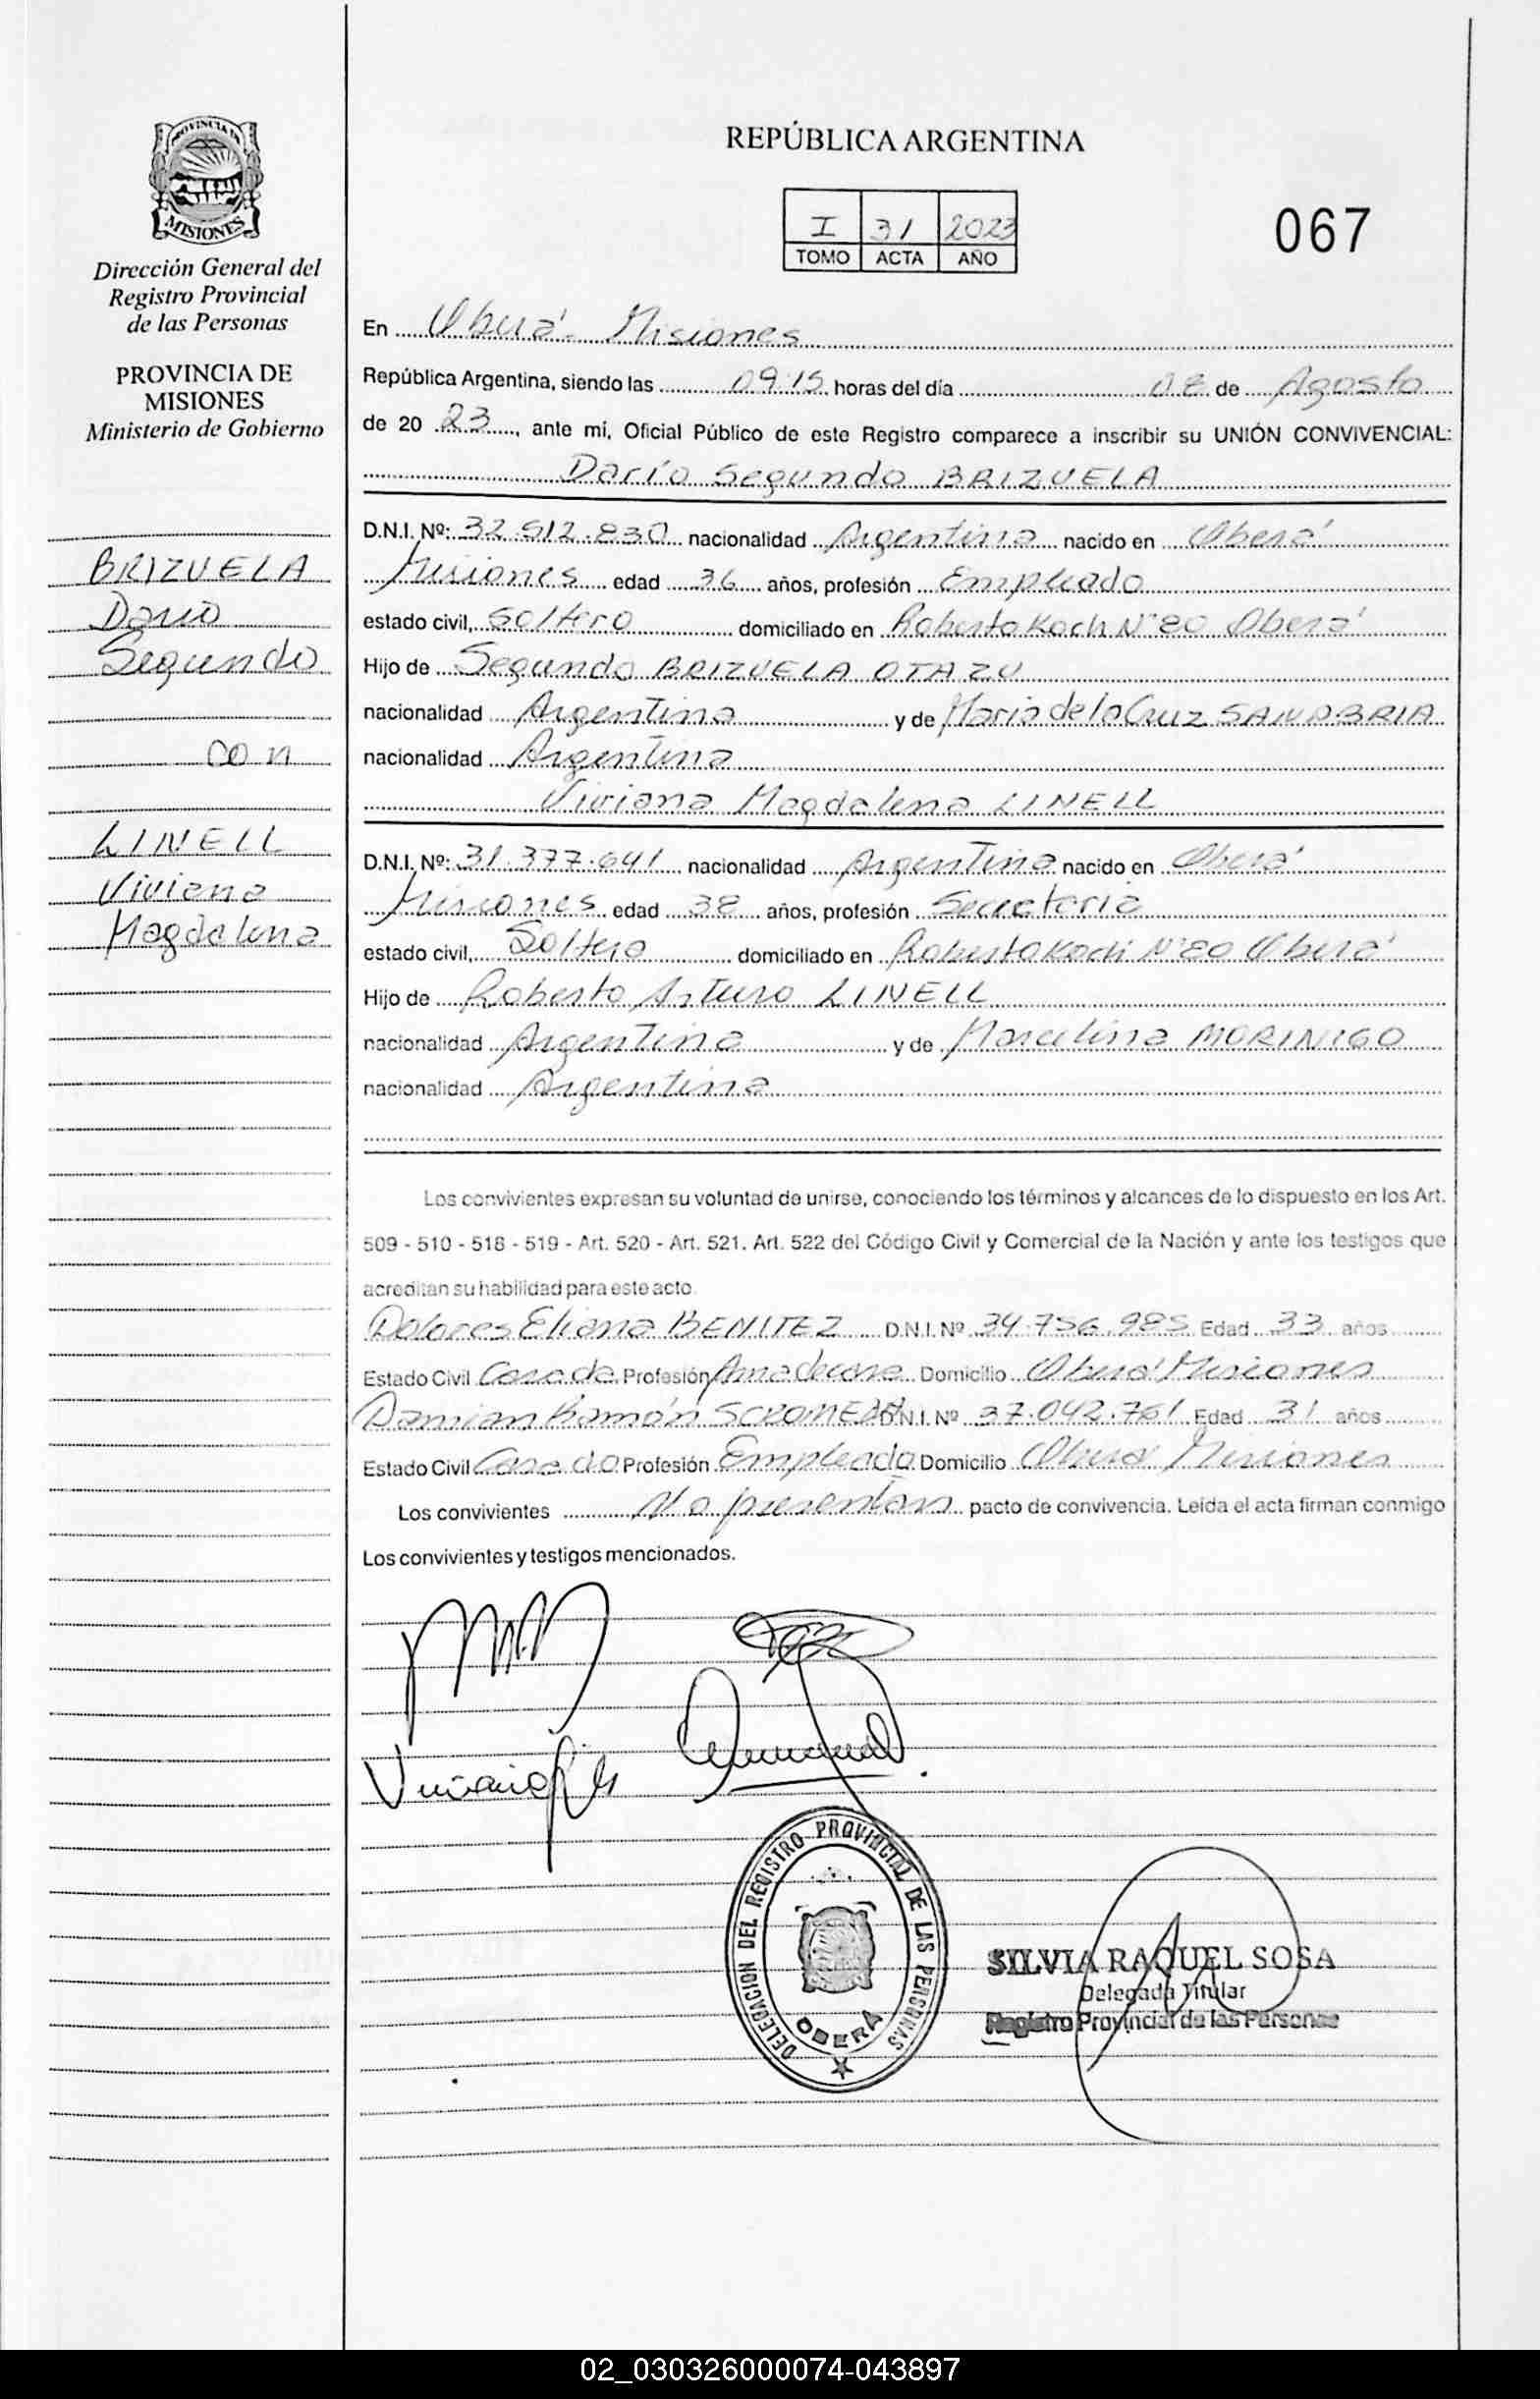 PROVINCIA DE
MISIONES
Dirección General del
Registro Provincial
de las Personas
PROVINCIA DE
MISIONES
Ministerio de Gobierno
BRIZUELA
Dario
Segundo
con
LINELL
Viviana
Magdalena
REPÚBLICA ARGENTINA
I 31 2023
TOMO ACTA AÑO
067
En Oberá - Misiones
República Argentina, siendo las 09:15 horas del día 08 de Agosto
de 20 23, ante mí, Oficial Público de este Registro comparece a inscribir su UNIÓN CONVIVENCIAL:
Darío Segundo BRIZUELA
D.N.I. Nº: 32.512.830 nacionalidad Argentina nacido en Oberá
Misiones edad 36 años, profesión Empleado
estado civil, Soltero domiciliado en Roberto Koch Nº 80 Oberá
Hijo de Segundo BRIZUELA OTAZU
nacionalidad Argentina y de Maria de la Cruz SANABRIA
nacionalidad Argentina
Viviana Magdalena LINELL
D.N.I. Nº: 31.377.641 nacionalidad Argentina nacido en Oberá
Misiones edad 38 años, profesión Secretaria
estado civil, Soltera domiciliado en Roberto Koch Nº 80 Oberá
Hijo de Roberto Arturo LINELL
nacionalidad Argentina y de Marcelina MORINIGO
nacionalidad Argentina
Los convivientes expresan su voluntad de unirse, conociendo los términos y alcances de lo dispuesto en los Art.
509 - 510 - 518 - 519 - Art. 520 - Art. 521. Art. 522 del Código Civil y Comercial de la Nación y ante los testigos que
acreditan su habilidad para este acto.
Dolores Eliana BENITEZ D.N.I. Nº 34.736.985 Edad 33 años
Estado Civil Casada Profesión Ama de casa Domicilio Oberá Misiones
Damian Ramón D.N.I. Nº 37.042.761 Edad 31 años
Estado Civil Casado Profesión Empleado Domicilio Oberá Misiones
Los convivientes No presentan pacto de convivencia. Leída el acta firman conmigo
Los convivientes y testigos mencionados.
DELEGACION DEL REGISTRO PROVINCIAL DE LAS PERSONAS
OBERA
SILVIA RAQUEL SOSA
Delegada Titular
Registro Provincial de las Personas
02_030326000074-043897